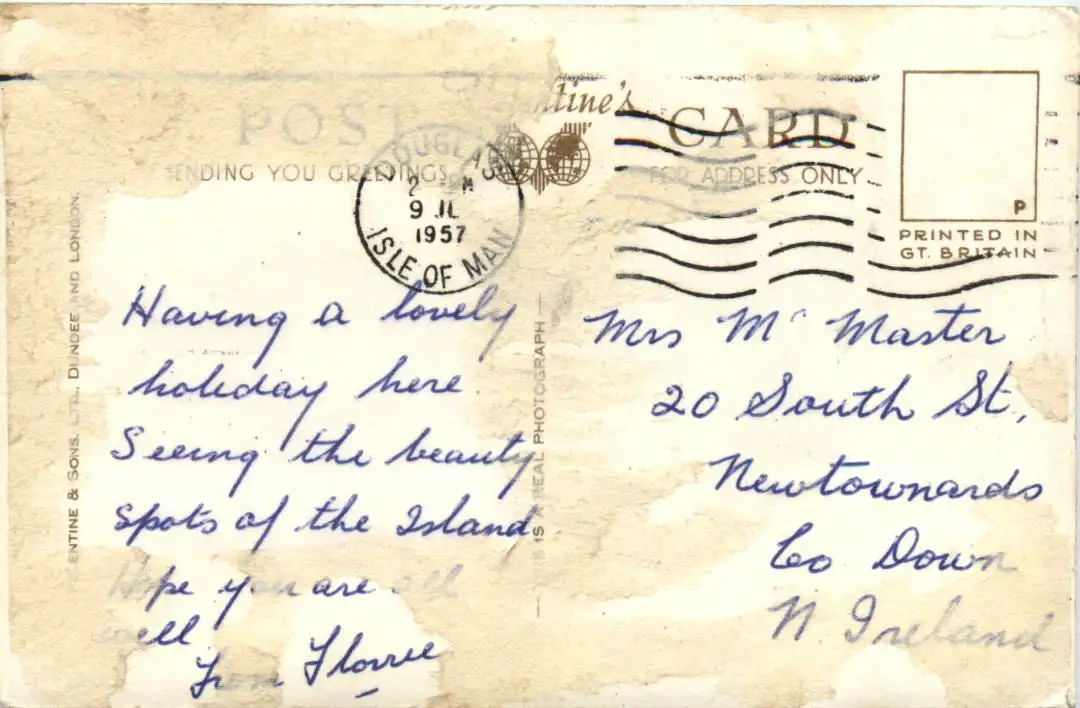 POST CARD
SENDING YOU GREETINGS
FOR ADDRESS ONLY
DOUGLAS
9 JL
1957
ISLE OF MAN
P
PRINTED IN
GT. BRITAIN
ENTINE & SONS. LTD., DUNDEE AND LONDON.
IS REAL PHOTOGRAPH
Having a lovely
holiday here.
Seeing the beauty
spots of the Island
Hope you are all
well
From Florrie
Mrs Mc Master
20 South St,
Newtownards
Co Down
N. Ireland